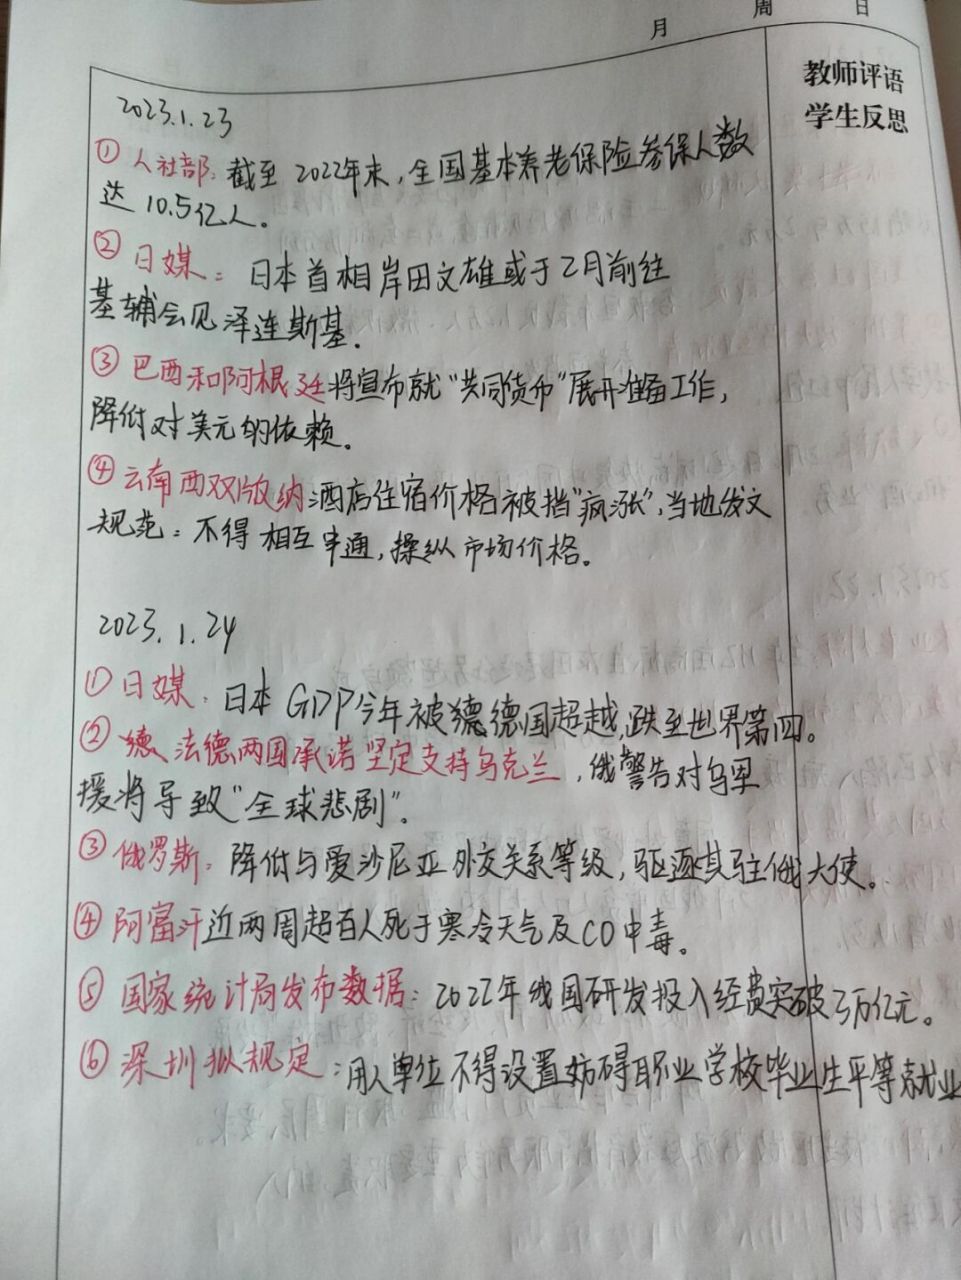 月 周 日
教师评语
学生反思
2023.1.23
① 人社部：截至2022年末，全国基本养老保险参保人数
达10.5亿人。
② 日媒：日本首相岸田文雄或于2月前往
基辅会见泽连斯基.
③ 巴西和阿根廷将宣布就“共同货币”展开准备工作，
降低对美元的依赖。
④ 云南西双版纳酒店住宿价格被指“疯涨”，当地发文
规范：不得相互串通，操纵市场价格。
2023.1.24
① 日媒：日本GDP今年被德德国超越，跌至世界第四。
② 法德两国承诺坚定支持乌克兰，俄警告对乌军
援将导致“全球悲剧”。
③ 俄罗斯：降低与爱沙尼亚外交关系等级，驱逐其驻俄大使。
④ 阿富汗近两周超百人死于寒冷天气及CO中毒。
⑤ 国家统计局发布数据：2022年我国研发投入经费突破3万亿元。
⑥ 深圳拟规定：用人单位不得设置妨碍职业学校毕业生平等就业